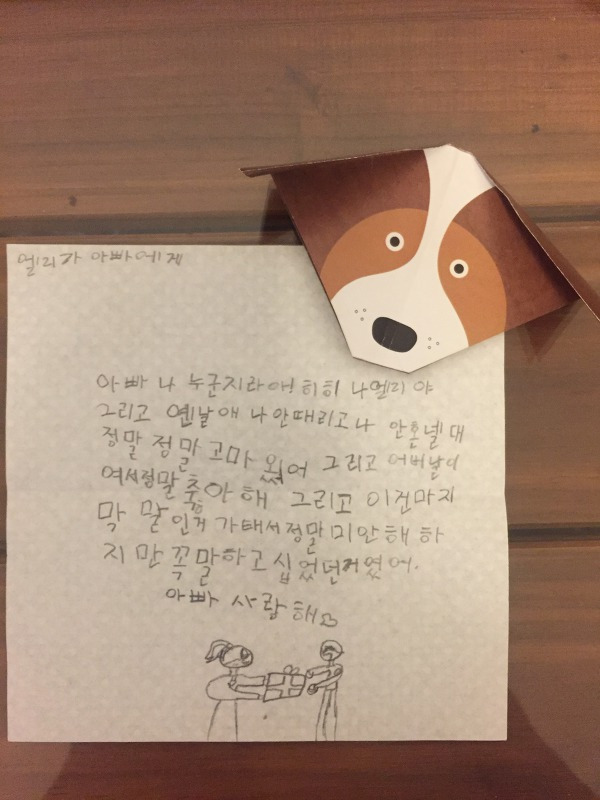 엘리가 아빠에게
아빠 나 누군지라아! 히히 나 엘리 야
그리고 옌날애 나 안때리고 나 안혼넬대
정말 정말 고마 웠어 그리고 어버날이
여서정말 축아 해 그리고 이건마지
막 말 인거 가태서 정말 미안 해 하
지 만 꼭 말하고 십었던거였어.
아빠 사랑 해♡